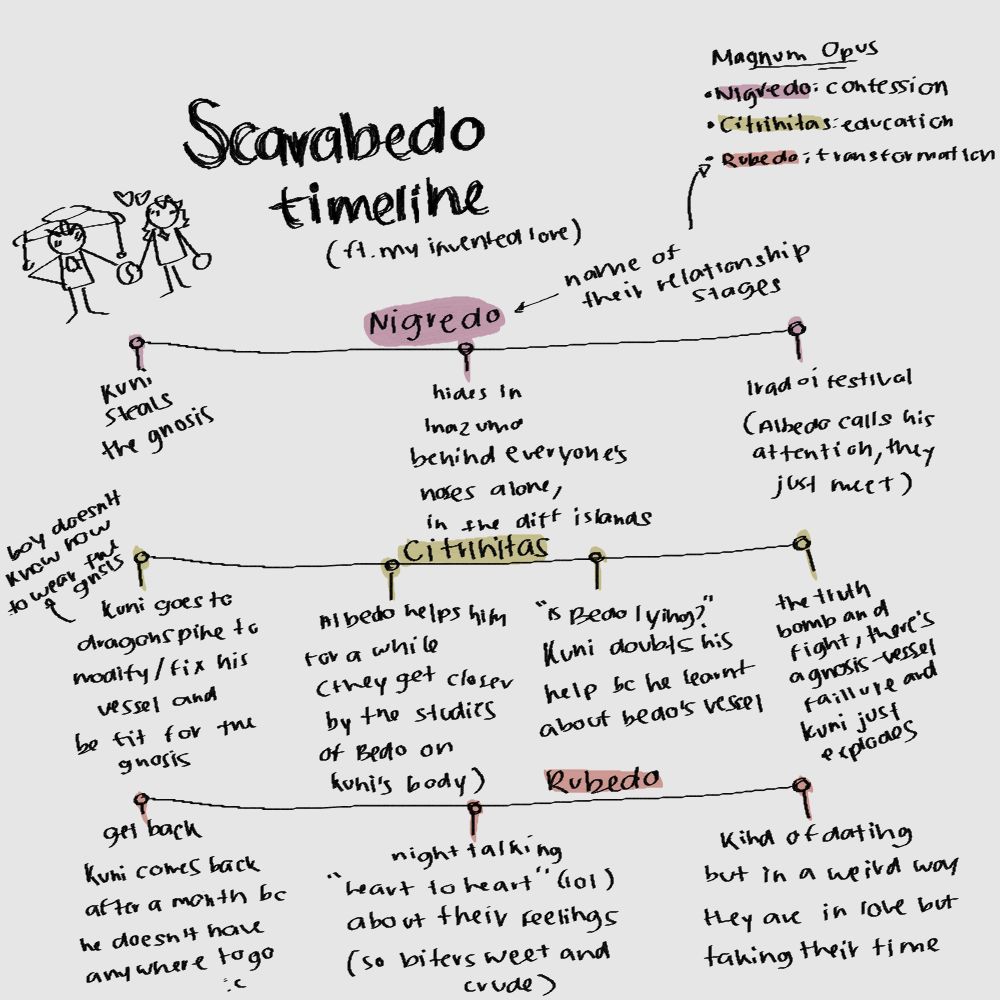 Magnum Opus
• Nigredo: confession
• Citrinitas: education
• Rubedo: transformation
Scarabedo
timeline
(ft. my invented lore)
name of
their relationship
stages
Nigredo
Kuni
steals
the gnosis
hides in
Inazuma
behind everyone's
noses alone,
in the diff islands
Irodori festival
(Albedo calls his
attention, they
just meet)
Citrinitas
boy doesn't
know how
to wear the
gnosis
Kuni goes to
dragonspine to
modify/fix his
vessel and
be fit for the
gnosis
Albedo helps him
for a while
(they get closer
by the studies
of Bedo on
kuni's body)
"is Bedo lying?"
Kuni doubts his
help bc he learnt
about bedo's vessel
the truth
bomb and
fight, there's
a gnosis-vessel
faillure and
kuni just
explodes
Rubedo
get back
Kuni comes back
after a month bc
he doesn't have
anywhere to go
:c
night talking
"heart to heart" (lol)
about their feelings
(so bitersweet and
crude)
Kind of dating
but in a weird way
they are in love but
taking their time